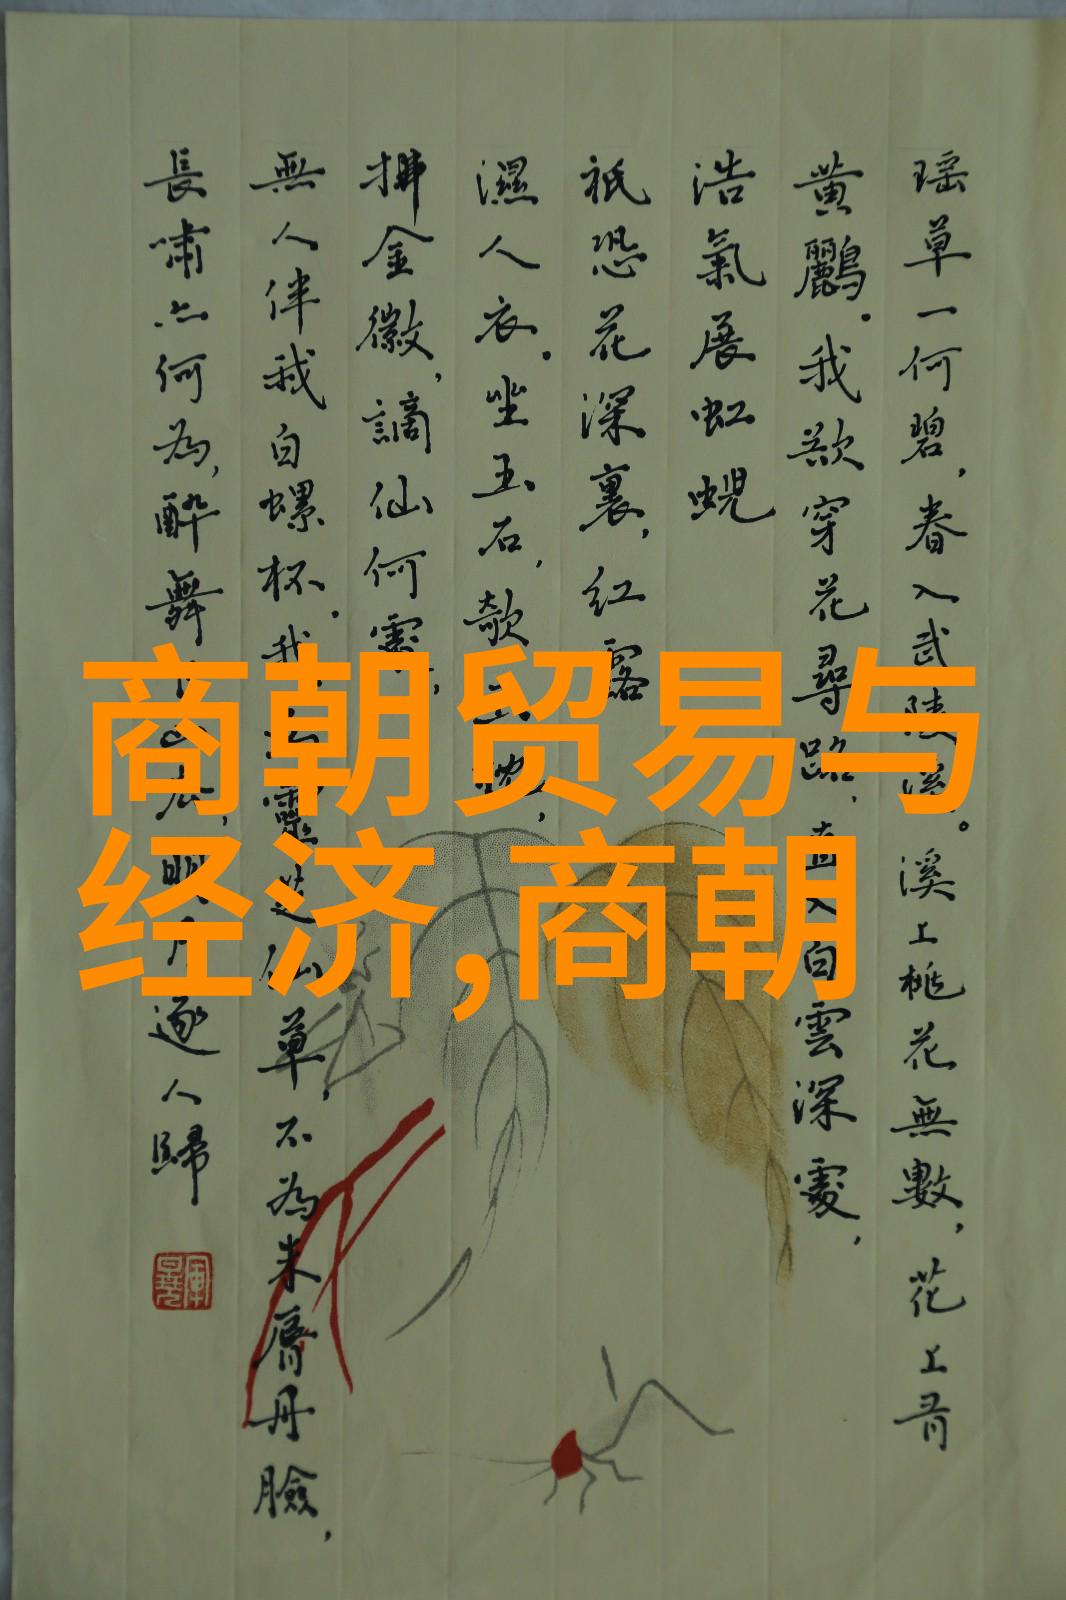 商朝贸易与
经济,商朝
瑶草一何碧,春入武陵溪。溪上桃花無數,花上有
黄鸝。我欲穿花尋路,直入白雲深處,
浩氣展虹蜺
祇恐花深裏,紅露
濕人衣。坐玉石,欹玉枕,
拂金徽,謫仙何處,
無人伴我白螺杯。我為靈芝仙草,不為朱脣丹臉,
長嘯亦何為,醉舞下山去,明月逐人歸